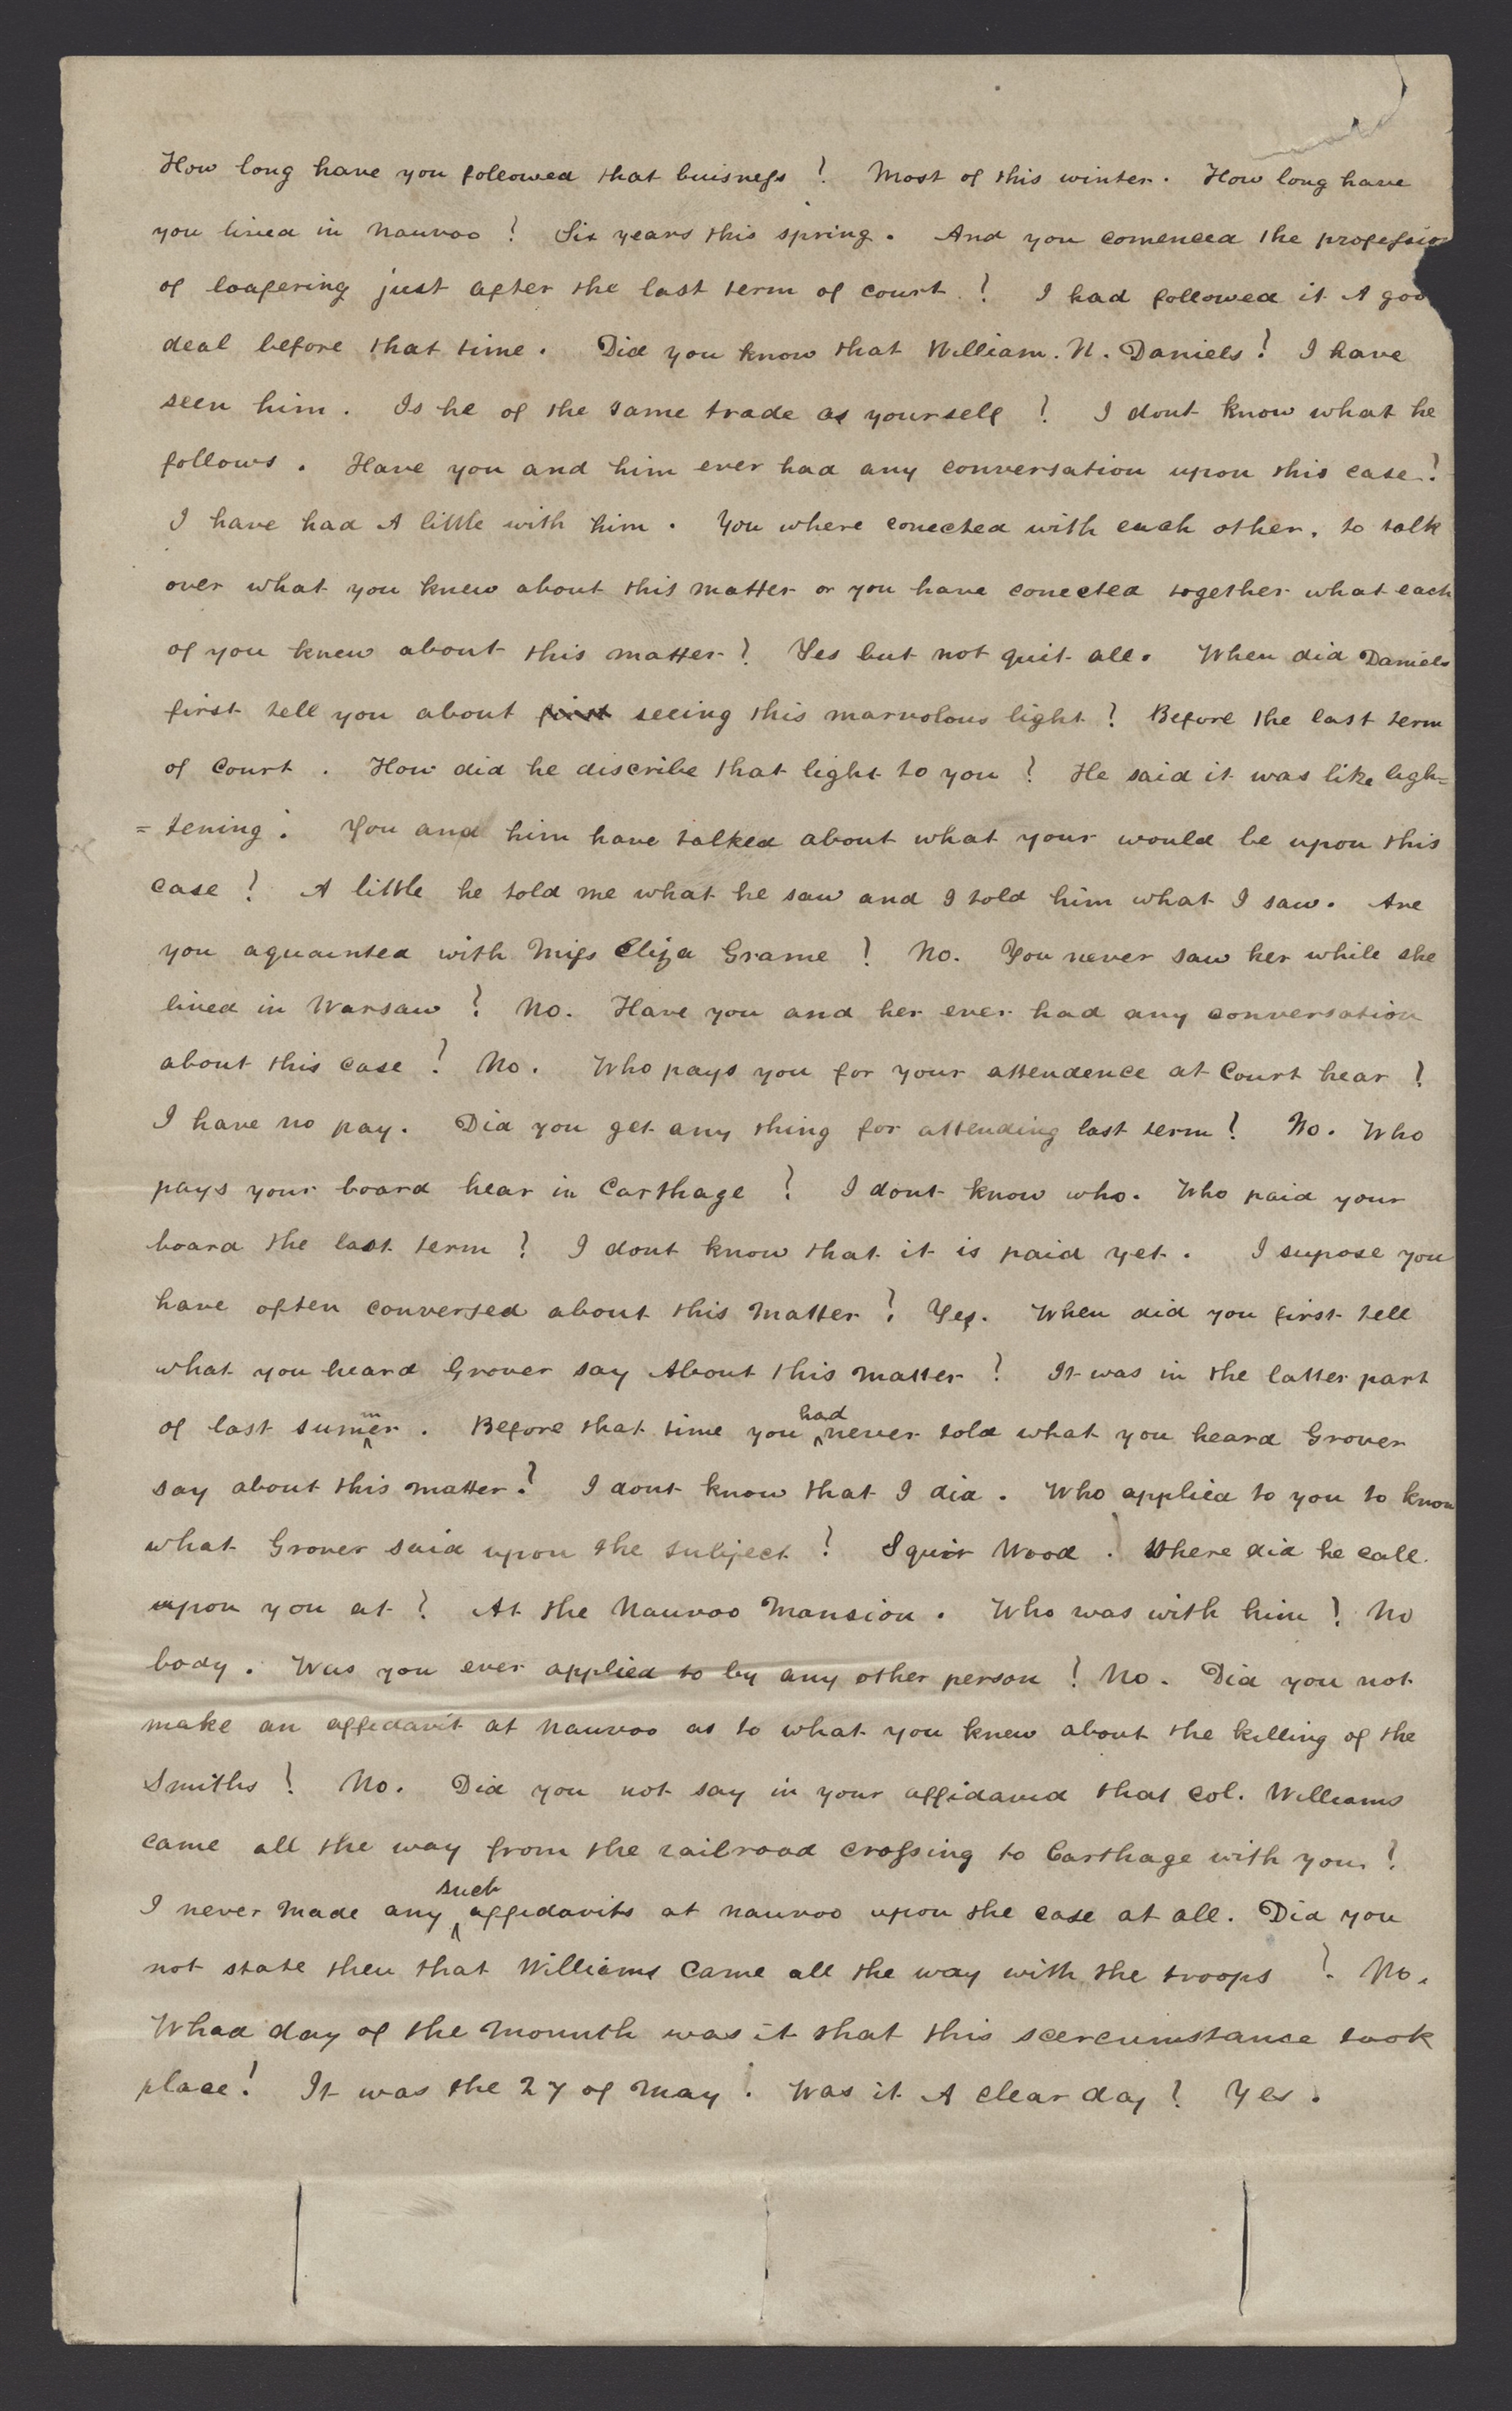 How long have you followed that buisness ? Most of this winter. How long have
you lived in Nauvoo ? Six years this spring. And you comenced the professio
of loafering just after the last term of court ? I had followed it A goo
deal before that time. Did you know that William. N. Daniels ? I have
seen him. Is he of the same trade as yourself ? I dont know what he
follows. Have you and him ever had any conversation upon this case ?
I have had A little with him. You where conected with each other, to talk
over what you knew about this matter or you have conected together what each
of you knew about this matter ? Yes but not quit all. When did Daniels
first tell you about first seeing this marvolous light ? Before the last term
of Court. How did he discribe that light to you ? He said it was like ligh=
=tening. You and him have talked about what your would be upon this
case ? A little he told me what he saw and I told him what I saw. Are
you aquainted with Miss Eliza Grame ? No. You never saw her while she
lived in Warsaw ? No. Have you and her ever had any conversation
about this case ? No. Who pays you for your attendence at Court hear ?
I have no pay. Did you get any thing for attending last term ? No. Who
pays your board hear in Carthage ? I dont know who. Who paid your
board the last term ? I dont know that it is paid yet. I supose you
have often conversed about this Matter ? Yes. When did you first tell
what you heard Grover say About this matter ? It was in the latter part
of last summer. Before that time you had never told what you heard Grover
say about this matter ? I dont know that I did. Who applied to you to know
what Grover said upon the subject ? Squir Wood. Where did he call
upon you at ? At the Nauvoo Mansion. Who was with him ? No
body. Was you ever applied to by any other person ? No. Did you not
make an affidavit at Nauvoo as to what you knew about the killing of the
Smiths ? No. Did you not say in your affidavid that Col. Williams
came all the way from the railroad crossing to Carthage with you ?
I never made any such affidavits at Nauvoo upon the case at all. Did you
not state then that Williams Came all the way with the troops ? No.
Whad day of the mounth was it that this scercumstance took
place ? It was the 27 of May. Was it A clear day ? Yes.